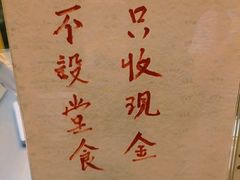 只收现金
不設堂食